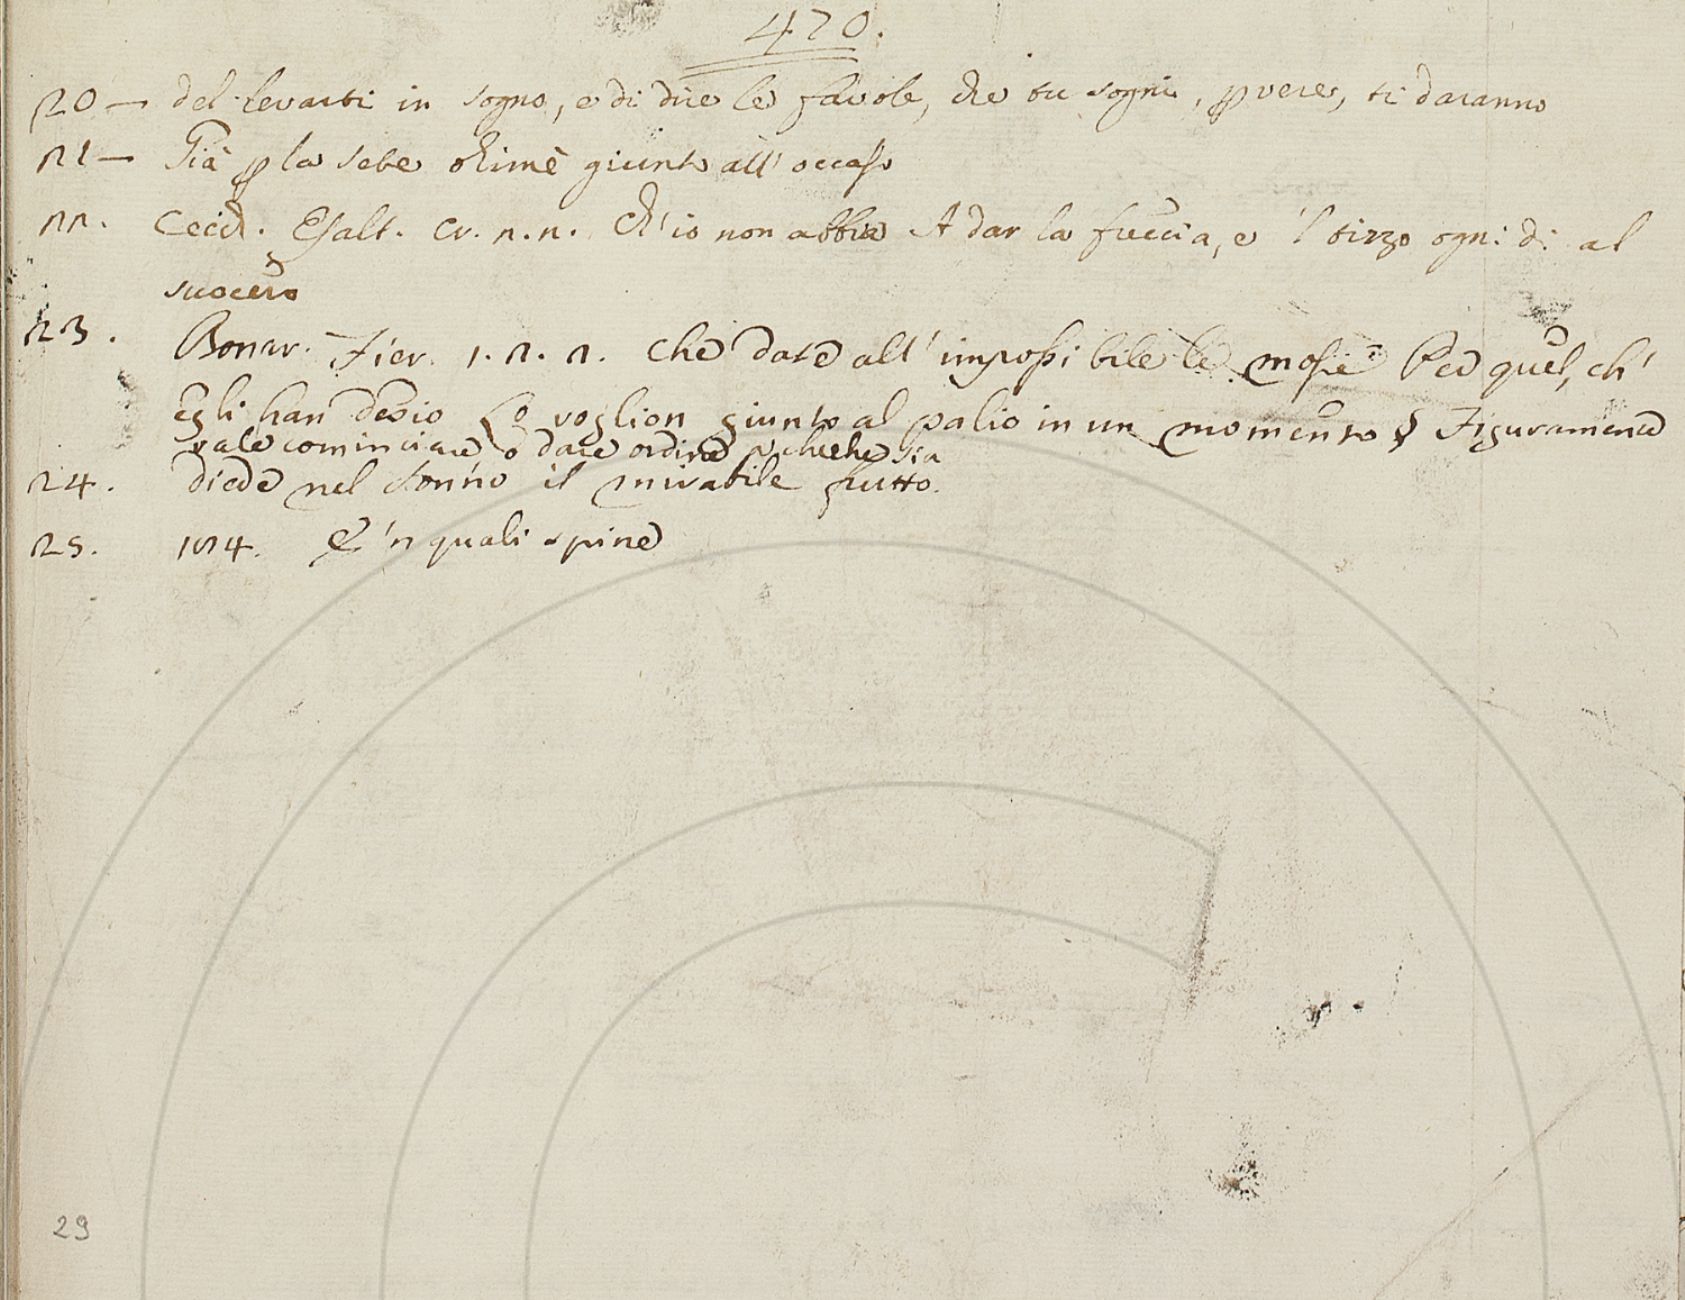 420.
20 — del levarti in sogno, e di dire le favole, che tu sogni, p vere, ti daranno
21 — Già p la sete ohimè giunto all' occaso
22. Cecch. Esalt. Cr. 2. 2. Ch' io non abbia A dar la freccia, e 'l ogni dì al
suocero
23. Bonar. Fier. 1. 2. 2. che date all' impossibile le mosse Ped quel, ch'
Egli han desio Lo voglion giunto al palio in un momento § Figuramente
vale cominciare, o dare ordine p chechesia
24. diede nel Tonno il mirabile frutto.
25. 104. E 'n quali spine
29